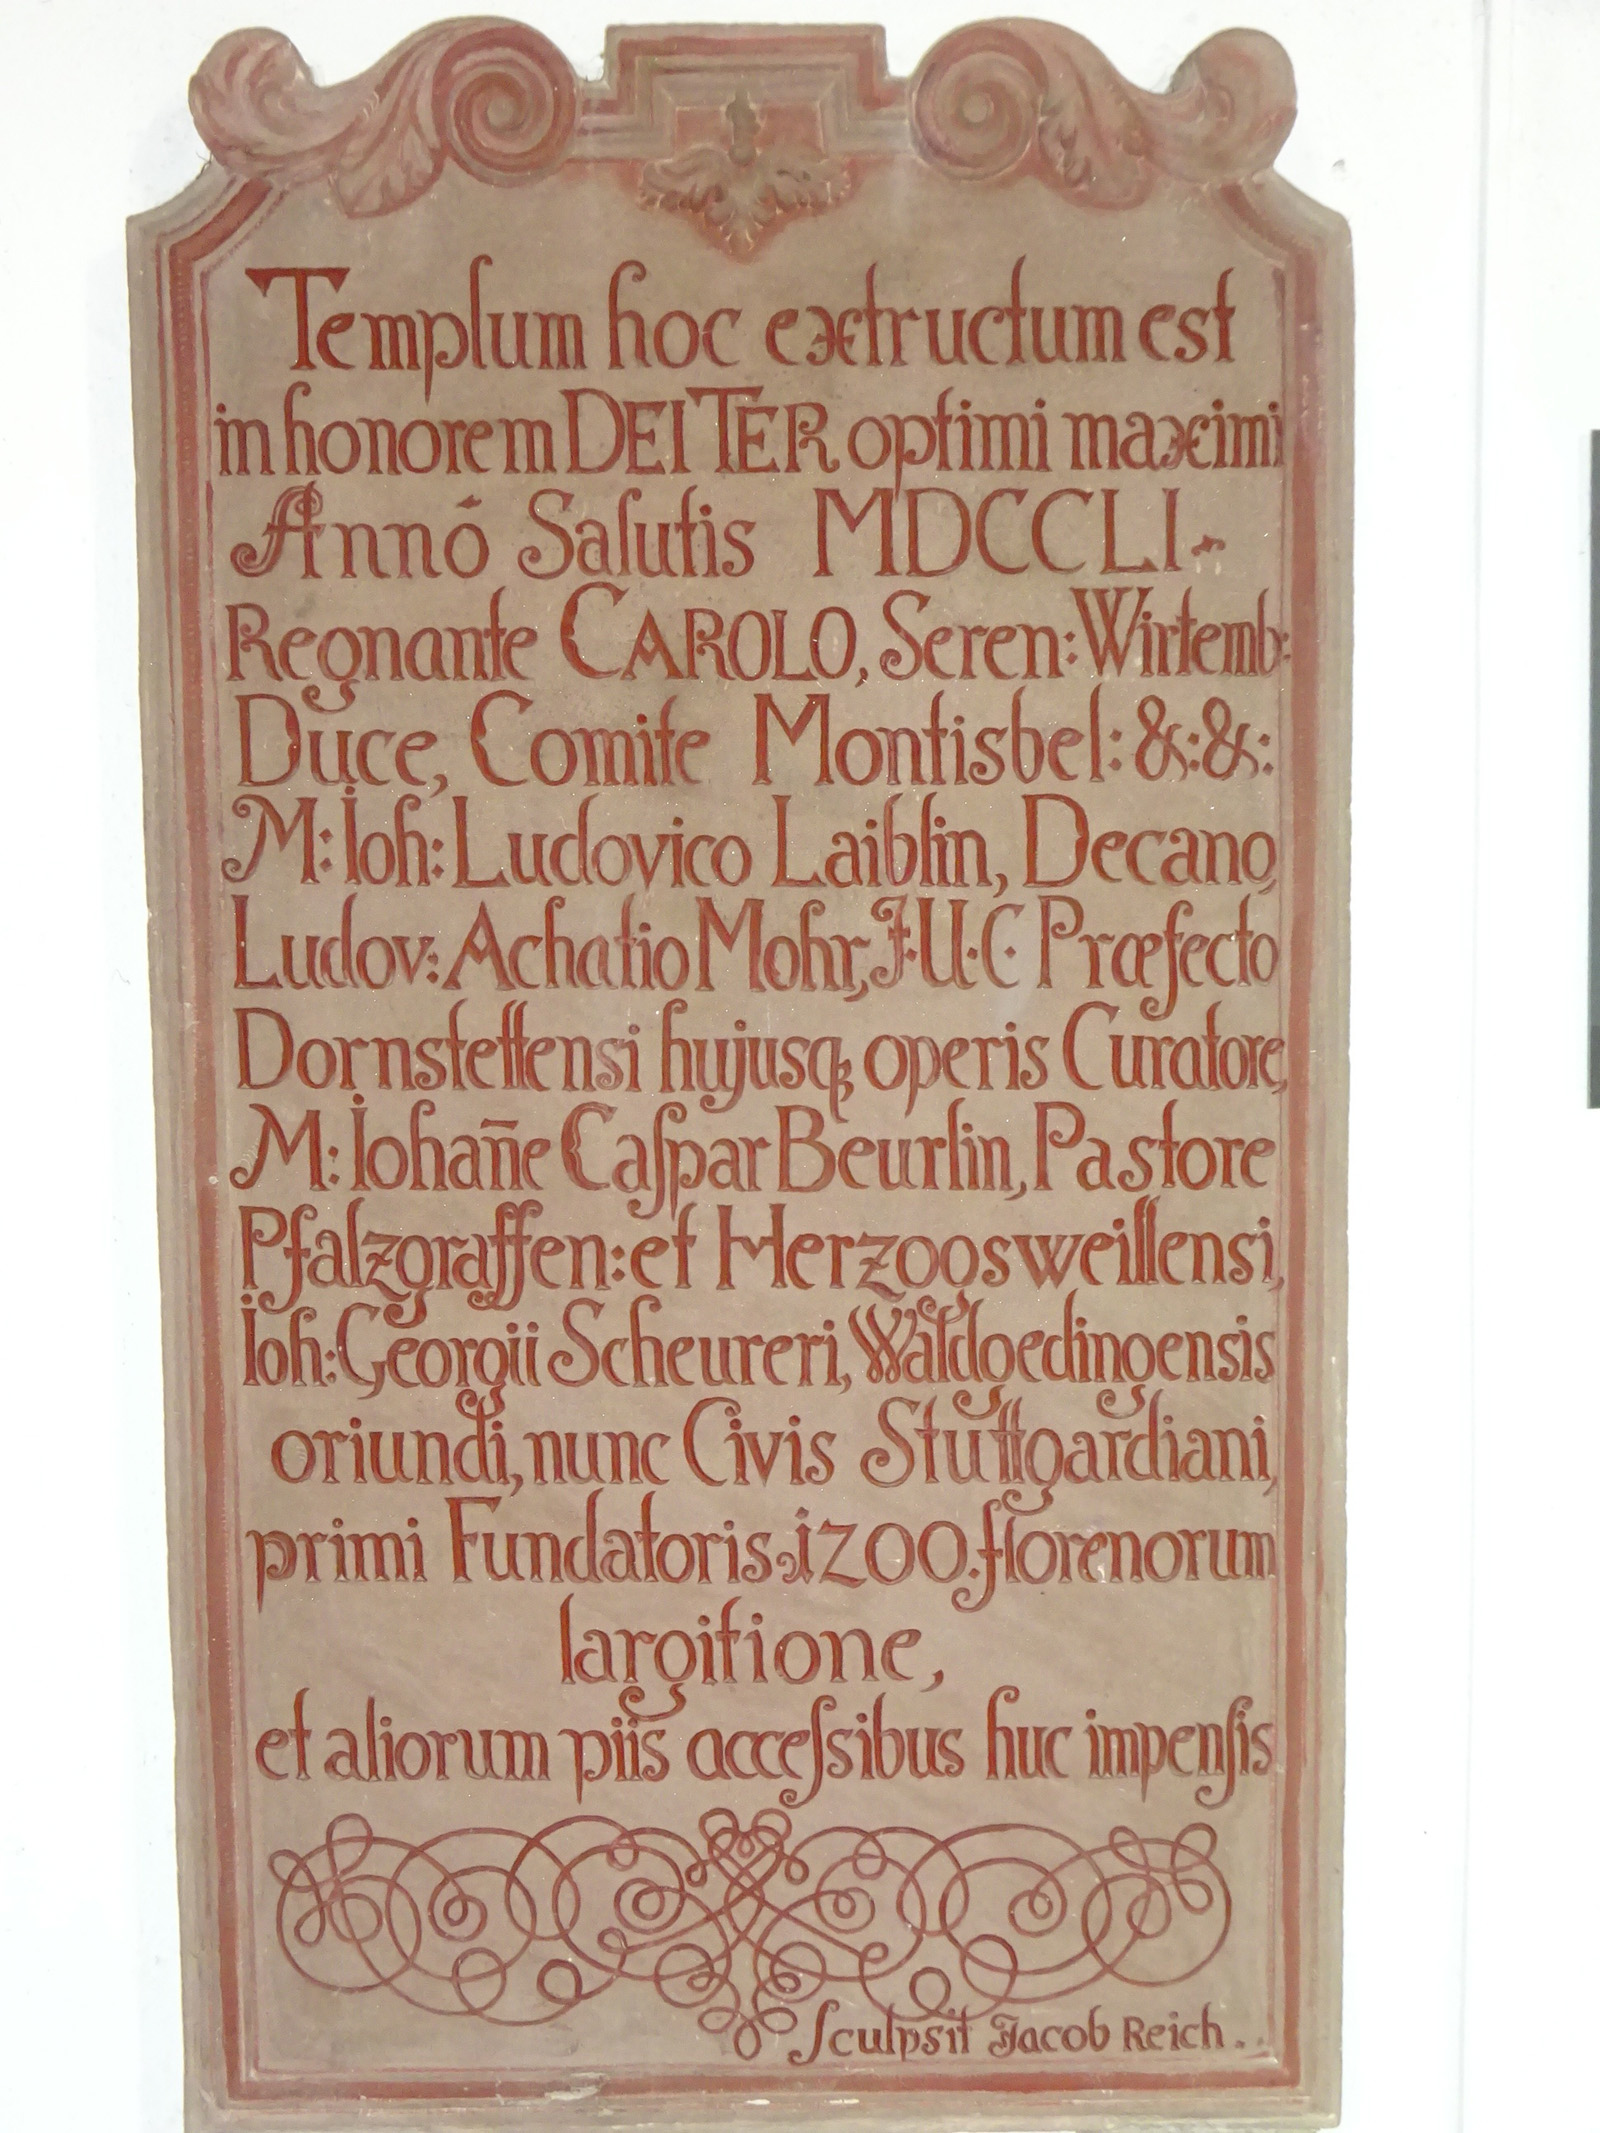 Templum hoc extructum est
in honorem DEI TER optimi maximi
Annó Salutis MDCCLI.
Regnante CAROLO, Seren: Wirtemb:
Duce, Comite Montisbel: &: &:
M: Ioh: Ludovico Laiblin, Decano,
Ludov: Achatio Mohr, J. U. C. Præfecto
Dornstettensi hujusq; operis Curatore,
M: Iohan̄e Caſpar Beurlin, Pastore
Pfalzgraffen: et Herzogsweillensi,
Ioh: Georgii Scheureri, Waldgedingensis
oriundi, nunc Civis Stuttgardiani,
primi Fundatoris. 1200. florenorum
largitione,
et aliorum piis acceſsibus huc impenſis
Sculpsit Jacob Reich.